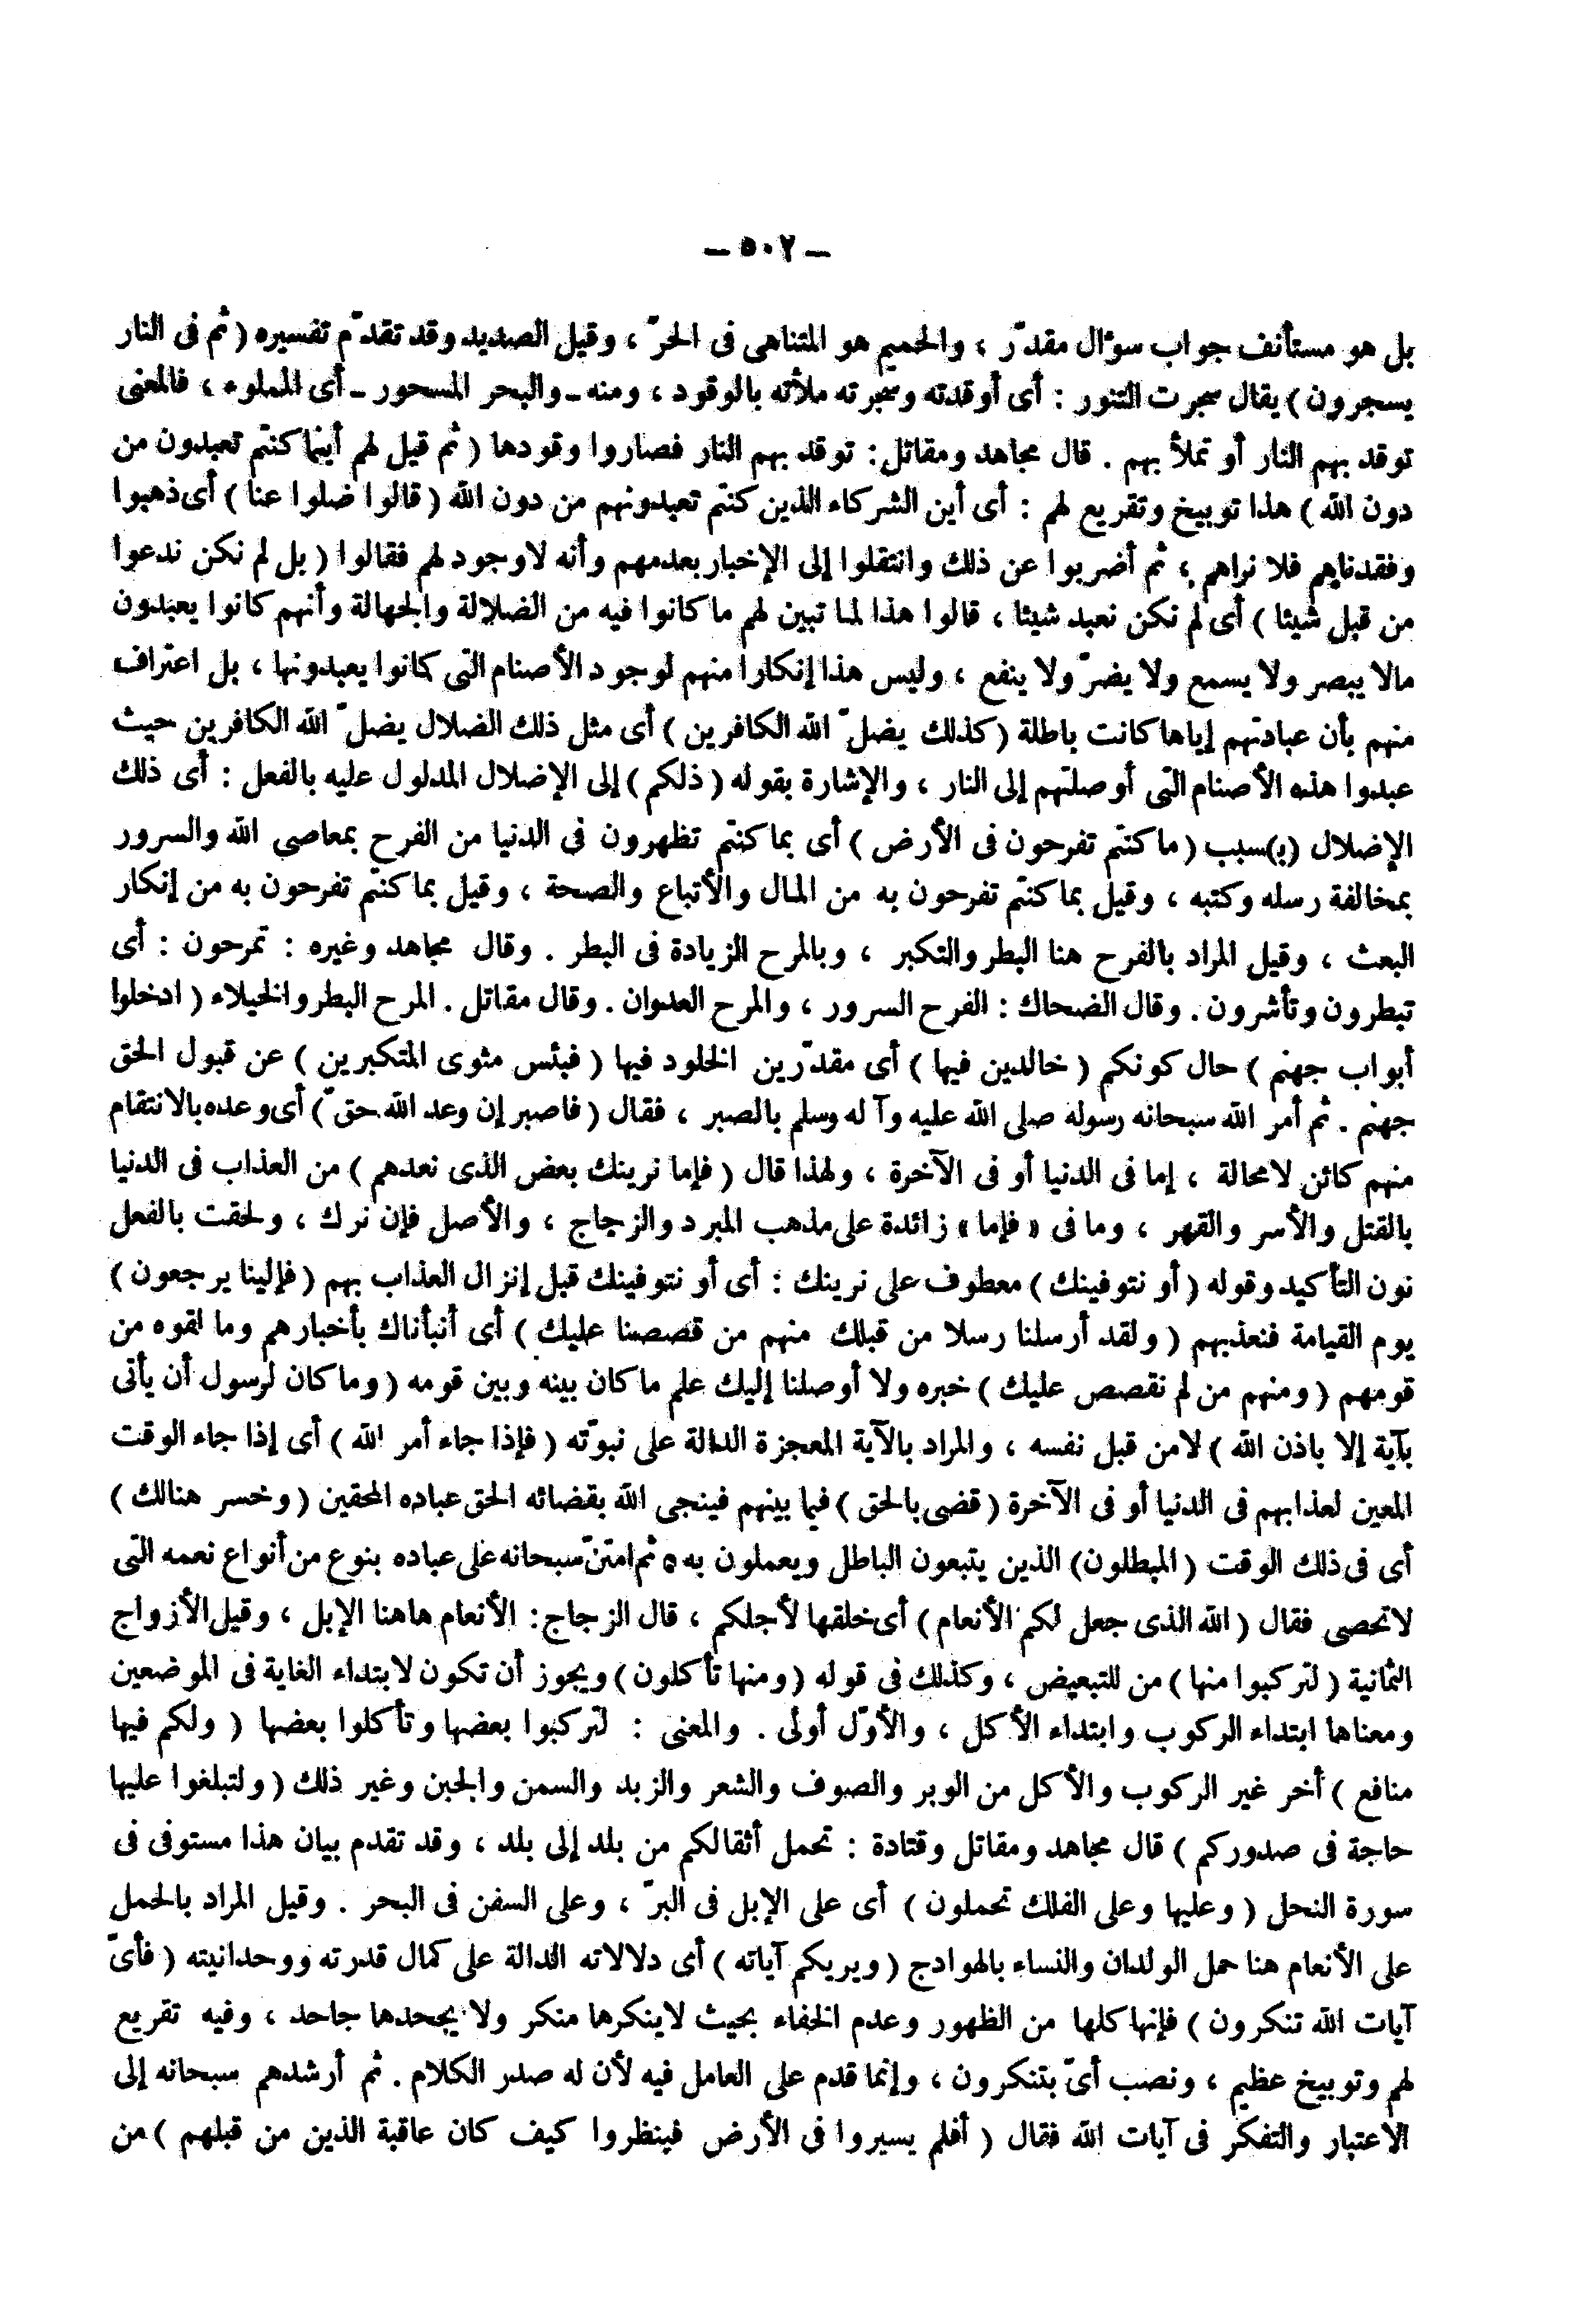 – ٥٠٢ –
بل هو مستأنف جواب سؤال مقدّر ، والحميم هو المتناهى فى الحرّ ، وقيل الصديد وقد تقدّم تفسيره ( ثم فى النار
يسجرون ) يقال سجرت التنور : أى أوقدته وسجرته ملأته بالوقود ، ومنه ـ والبحر المسحور ـ أى المملوء ، فالمعنى
توقد بهم النار أو تملأ بهم . قال مجاهد ومقاتل : توقد بهم النار فصاروا وقودها ( ثم قيل لهم أينما كنتم تعبدون من
دون الله ) هذا توبيخ وتقريع لهم : أى أين الشركاء الذين كنتم تعبدونهم من دون الله ( قالوا ضلوا عنا ) أى ذهبوا
وفقدناهم فلا نراهم ، ثم أضربوا عن ذلك وانتقلوا إلى الإخبار بعدمهم وأنه لاوجود لهم فقالوا ( بل لم نكن ندعوا
من قبل شيئا ) أى لم نكن نعبد شيئا ، قالوا هذا لما تبين لهم ما كانوا فيه من الضلالة والجهالة وأنهم كانوا يعبدون
مالا يبصر ولا يسمع ولا يضرّ ولا ينفع ، وليس هذا إنكارا منهم لوجود الأصنام التى كانوا يعبدونها ، بل اعتراف
منهم بأن عبادتهم إياها كانت باطلة ( كذلك يضلّ الله الكافرين ) أى مثل ذلك الضلال يضلّ الله الكافرين حيث
عبدوا هذه الأصنام التى أوصلتهم إلى النار ، والإشارة بقوله ( ذلكم ) إلى الإضلال المدلول عليه بالفعل : أى ذلك
الإضلال (ب)سبب ( ما كنتم تفرحون فى الأرض ) أى بما كنتم تظهرون فى الدنيا من الفرح بمعاصى الله والسرور
بمخالفة رسله وكتبه ، وقيل بما كنتم تفرحون به من المال والأتباع والصحة ، وقيل بما كنتم تفرحون به من إنكار
البعث ، وقيل المراد بالفرح هنا البطر والتكبر ، وبالمرح الزيادة فى البطر . وقال مجاهد وغيره : تمرحون : أى
تبطرون وتأشرون . وقال الضحاك : الفرح السرور ، والمرح العدوان . وقال مقاتل . المرح البطر والخيلاء ( ادخلوا
أبواب جهنم ) حال كونكم ( خالدين فيها ) أى مقدّرين الخلود فيها ( فبئس مثوى المتكبرين ) عن قبول الحق
جهنم . ثم أمر الله سبحانه رسوله صلى الله عليه وآله وسلم بالصبر ، فقال ( فاصبر إن وعد الله حقّ ) أى وعده بالانتقام
منهم كائن لامحالة ، إما فى الدنيا أو فى الآخرة ، ولهذا قال ( فإما نرينك بعض الذى نعدهم ) من العذاب فى الدنيا
بالقتل والأسر والقهر ، وما فى « فإما » زائدة على مذهب المبرد والزجاج ، والأصل فإن نرك ، ولحقت بالفعل
نون التأكيد وقوله ( أو نتوفينك ) معطوف على نرينك : أى أو نتوفينك قبل إنزال العذاب بهم ( فإلينا يرجعون )
يوم القيامة فنعذبهم ( ولقد أرسلنا رسلا من قبلك منهم من قصصنا عليك ) أى أنبأناك بأخبارهم وما لقوه من
قومهم ( ومنهم من لم نقصص عليك ) خبره ولا أوصلنا إليك علم ما كان بينه وبين قومه ( وما كان لرسول أن يأتى
بآية إلا باذن الله ) لامن قبل نفسه ، والمراد بالآية المعجزة الدالة على نبوّته ( فإذا جاء أمر الله ) أى إذا جاء الوقت
المعين لعذابهم فى الدنيا أو فى الآخرة ( قضى بالحق ) فيما بينهم فينجى الله بقضائه الحق عباده المحقين ( وخسر هنالك )
أى فى ذلك الوقت ( المبطلون ) الذين يتبعون الباطل ويعملون به ، ثم امتنّ سبحانه على عباده بنوع من أنواع نعمه التى
لاتحصى فقال ( الله الذى جعل لكم الأنعام ) أى خلقها لأجلكم ، قال الزجاج : الأنعام هاهنا الإبل ، وقيل الأزواج
الثمانية ( لتركبوا منها ) من للتبعيض ، وكذلك فى قوله ( ومنها تأكلون ) ويجوز أن تكون لابتداء الغاية فى الموضعين
ومعناها ابتداء الركوب وابتداء الأكل ، والأوّل أولى . والمعنى : لتركبوا بعضها وتأكلوا بعضها ( ولكم فيها
منافع ) أخر غير الركوب والأكل من الوبر والصوف والشعر والزبد والسمن والجبن وغير ذلك ( ولتبلغوا عليها
حاجة فى صدوركم ) قال مجاهد ومقاتل وقتادة : تحمل أثقالكم من بلد إلى بلد ، وقد تقدم بيان هذا مستوفى فى
سورة النحل ( وعليها وعلى الفلك تحملون ) أى على الإبل فى البرّ ، وعلى السفن فى البحر . وقيل المراد بالحمل
على الأنعام هنا حمل الولدان والنساء بالهوادج ( ويريكم آياته ) أى دلالاته الدالة على كمال قدرته ووحدانيته ( فأىّ
آيات الله تنكرون ) فإنها كلها من الظهور وعدم الخفاء بحيث لاينكرها منكر ولا يجحدها جاحد ، وفيه تقريع
لهم وتوبيخ عظيم ، ونصب أىّ بتنكرون ، وإنما قدم على العامل فيه لأن له صدر الكلام . ثم أرشدهم سبحانه إلى
الاعتبار والتفكر فى آيات الله فقال ( أفلم يسيروا فى الأرض فينظروا كيف كان عاقبة الذين من قبلهم ) من